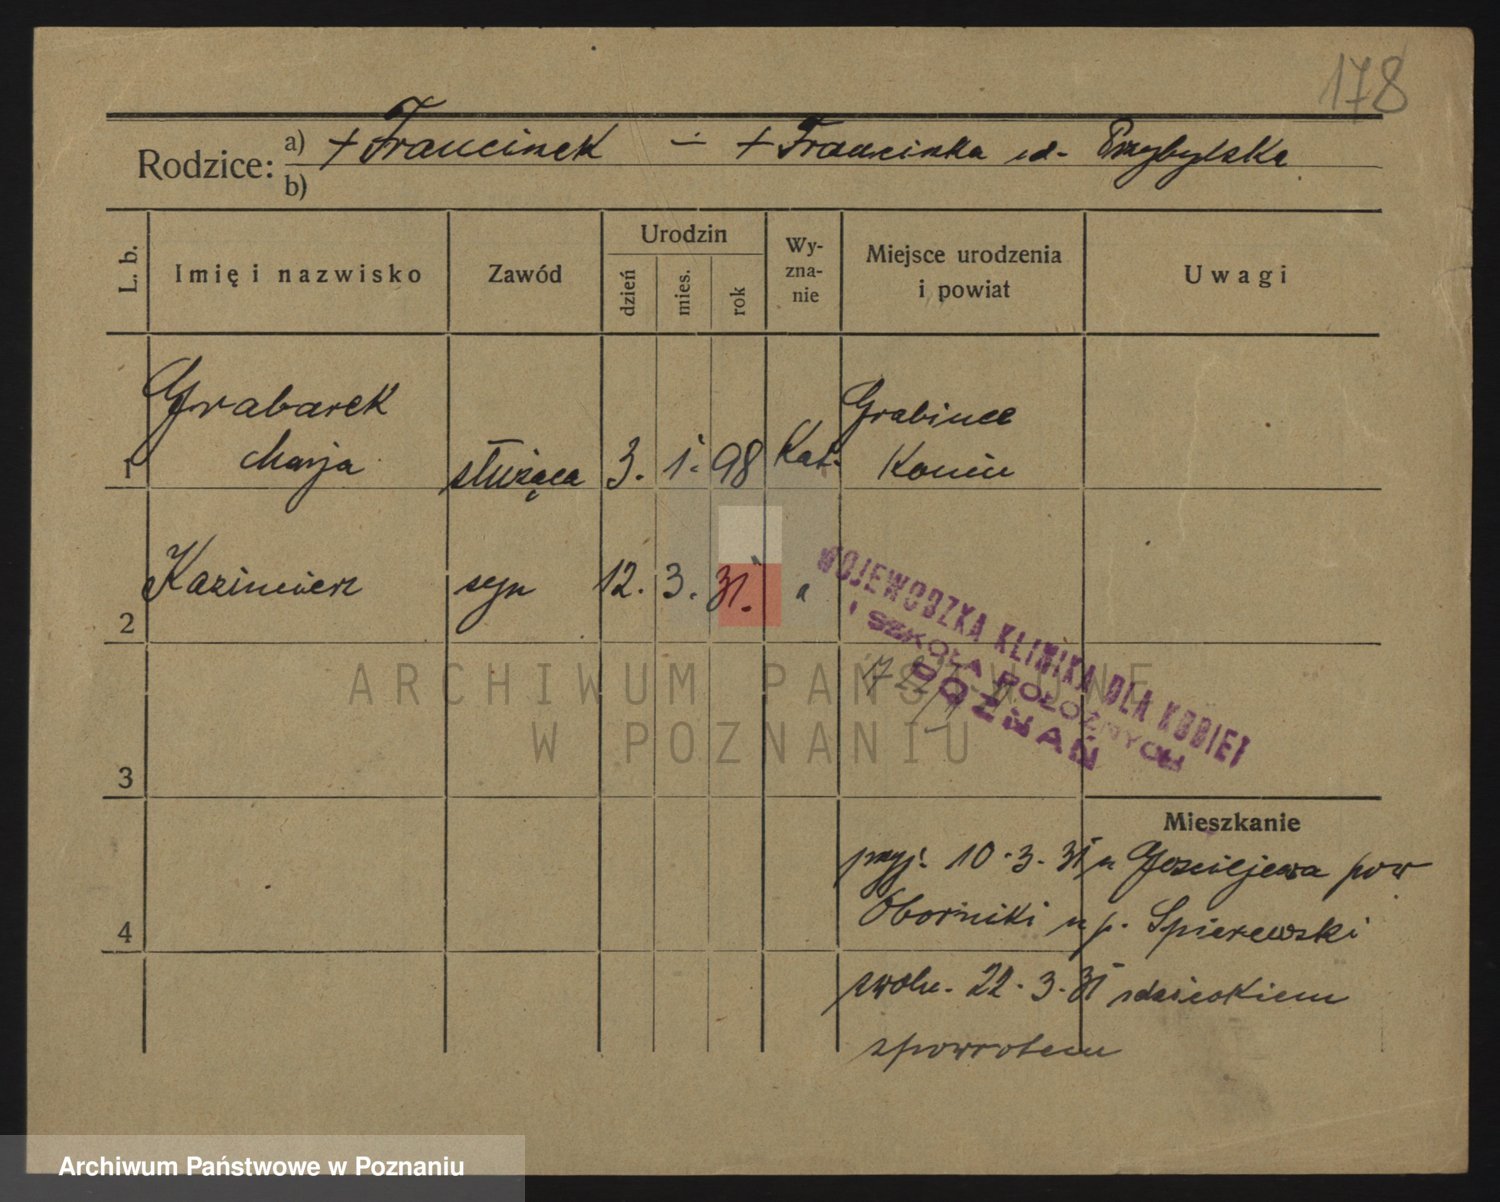 178
Rodzice: a) + Franciszek ÷ + Franciszka zd. Przybylska
b)
L. b.
Imię i nazwisko
Zawód
Urodzin
dzień
mies.
rok
Wy-
zna-
nie
Miejsce urodzenia
i powiat
Uwagi
Grabarek
1 Marja służąca 3. 1. 98 Kat. Grabince
Konin
2 Kazimierz syn 12. 3. 31.
WOJEWODZKA KLINIKA DLA KOBIET
I SZKOŁA POŁOŻNYCH
POZNAŃ
ARCHIWUM PAŃSTWOWE
W POZNANIU
3
Mieszkanie
przyj. 10.3.31 z Gościejewa pow
4 Oborniki u p. Spierewski
zwoln. 22.3.31 z dzieckiem
zpowrotem
Archiwum Państwowe w Poznaniu